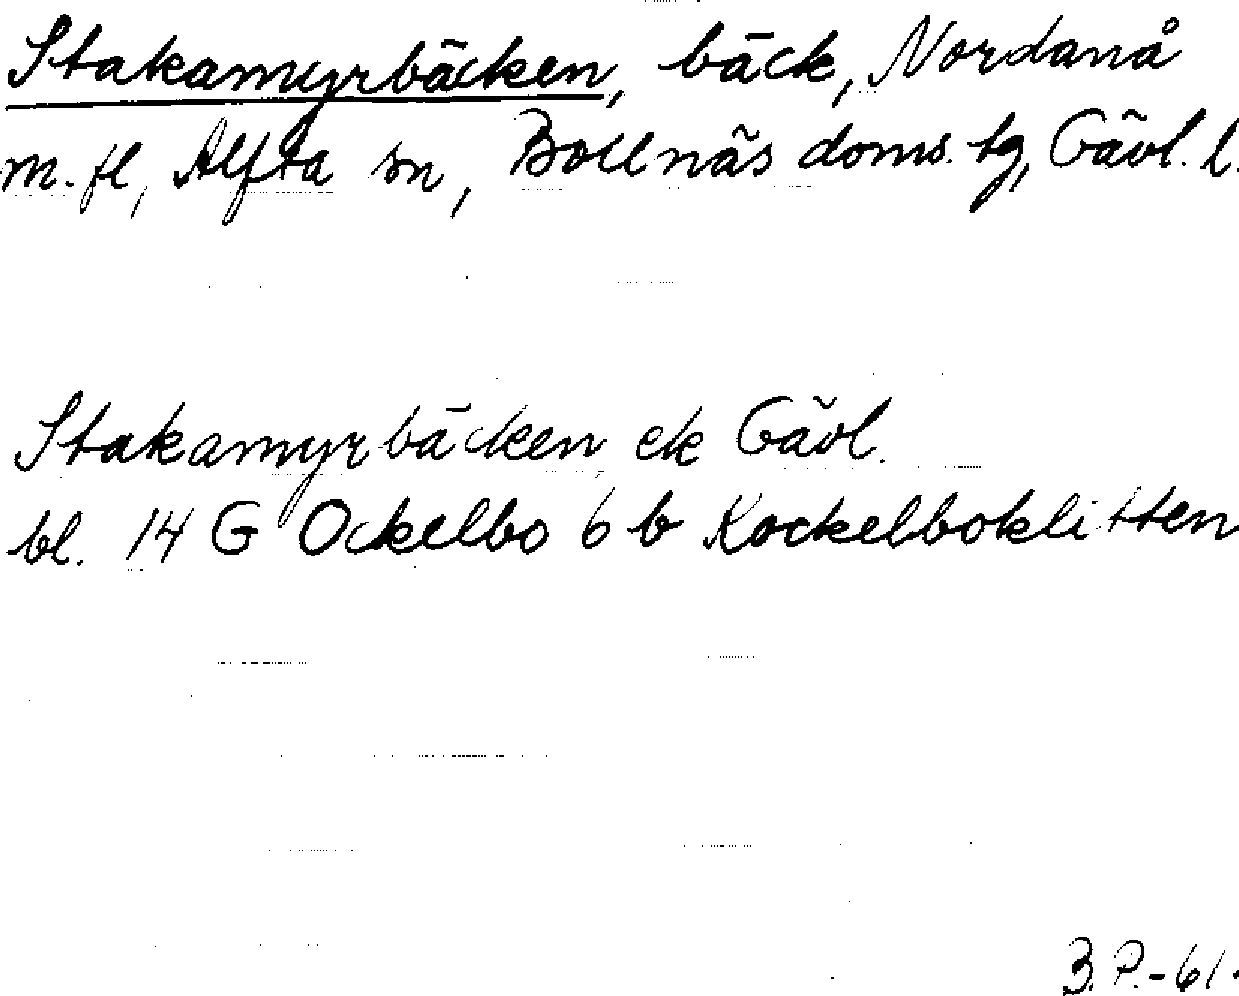 Stakamyrbäcken, bäck, Nordanå
m. fl, Alfta sn, Bollnäs doms. tg, Gävl. l.
Stakamyrbäcken ek Gävl.
bl. 14 G Ockelbo 6 b Kockelboklitten
B.P.-61.